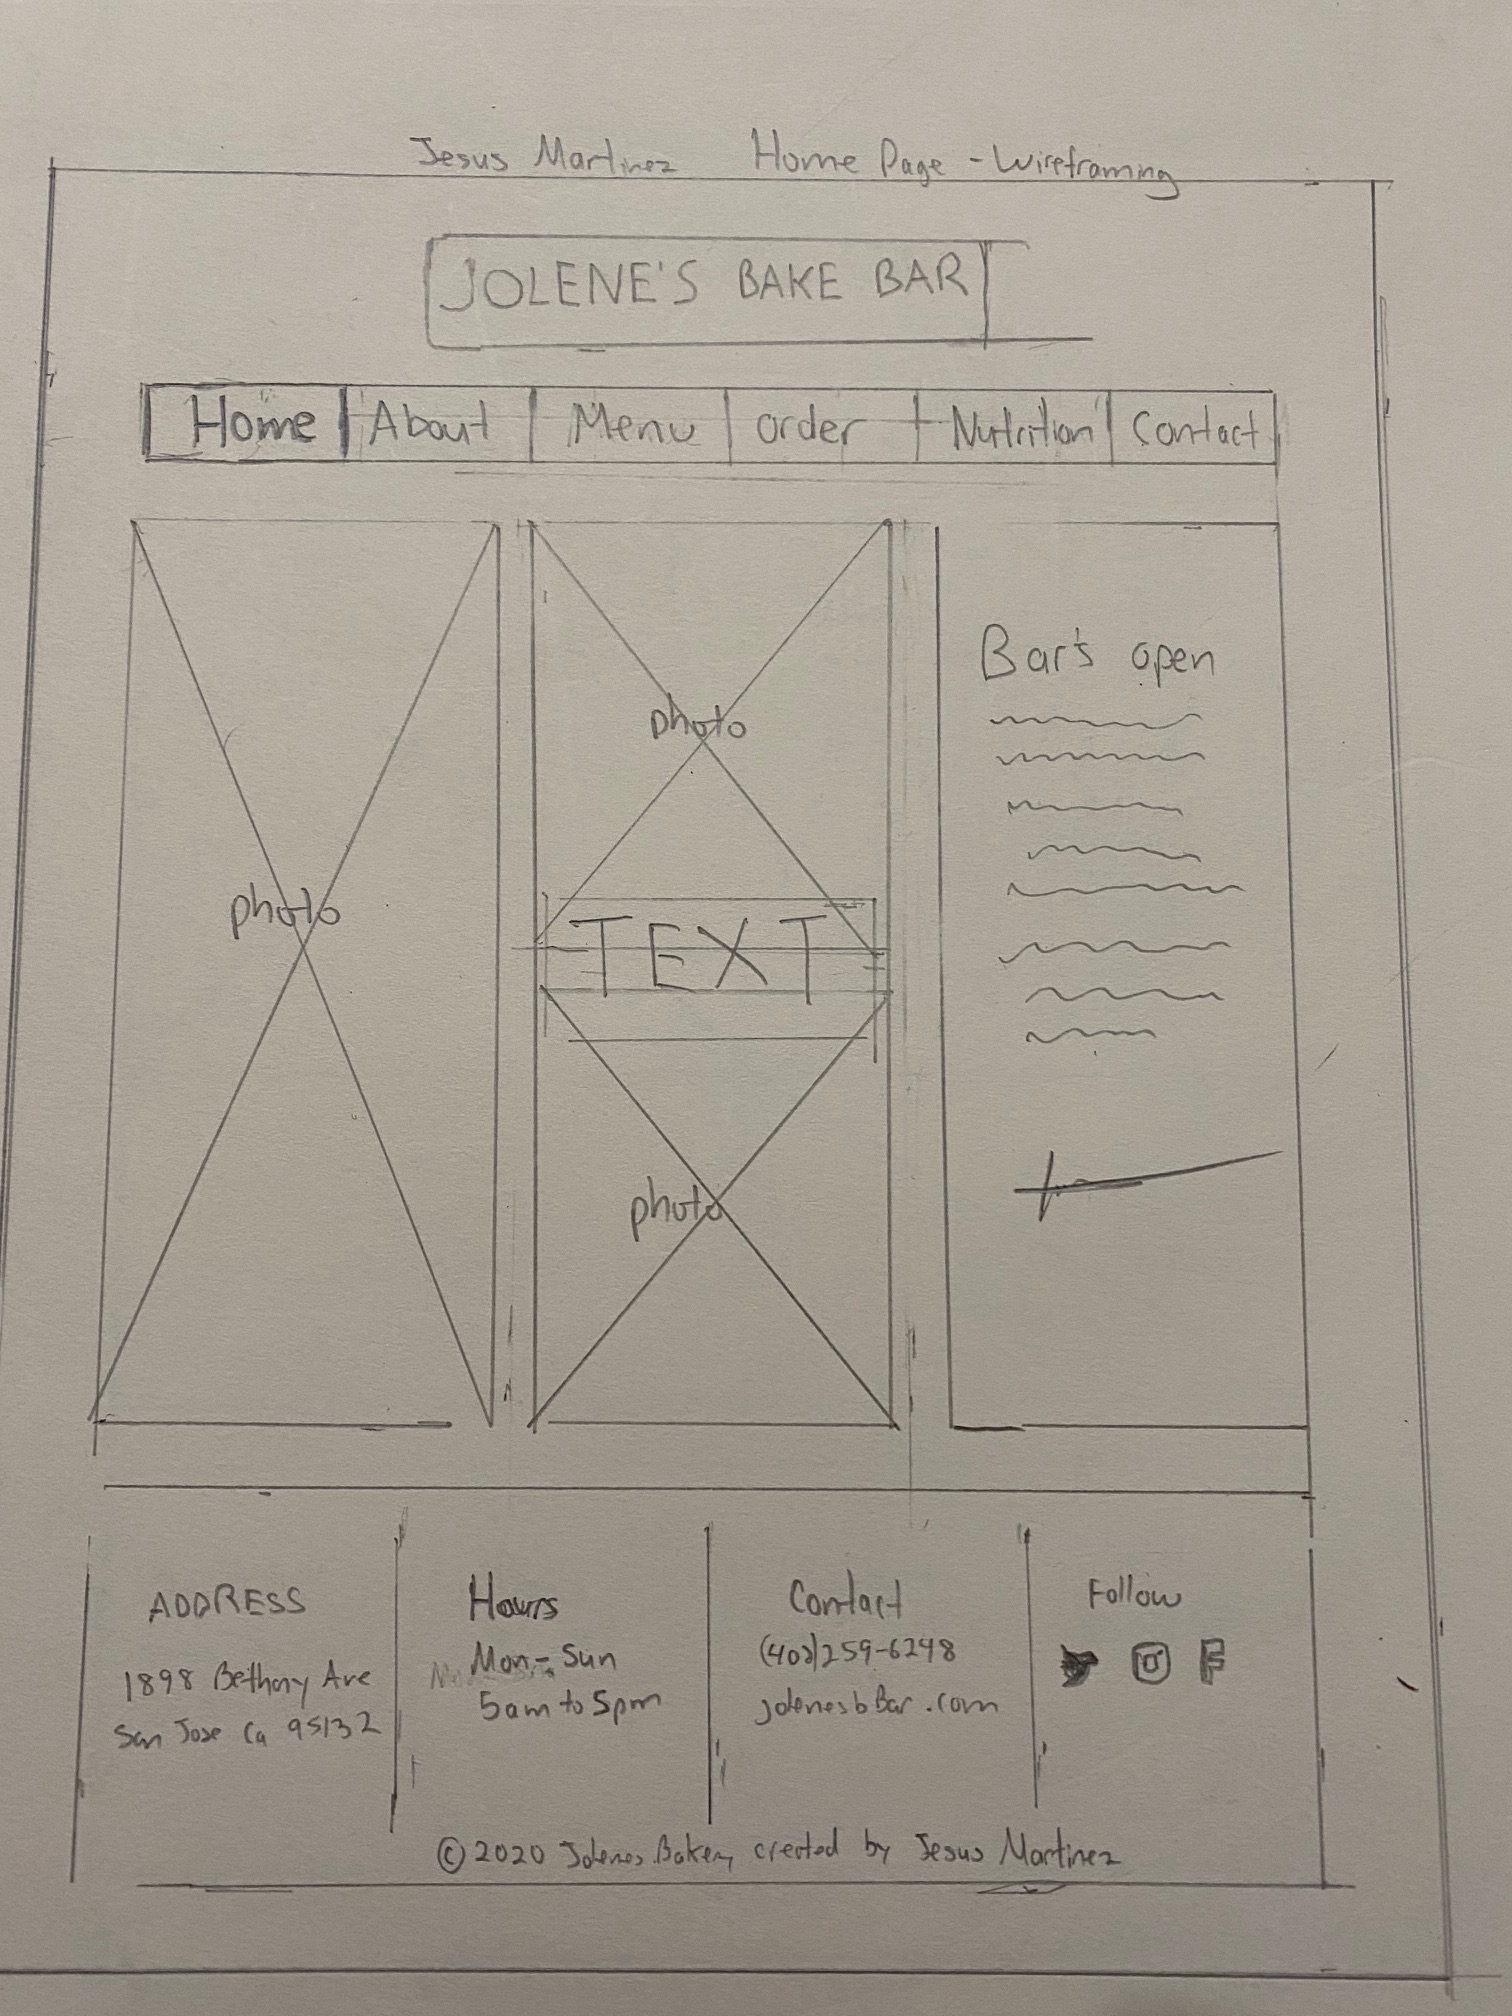 Jesus Martinez Home Page - Wireframing
JOLENE'S BAKE BAR
Home About Menu order Nutrition Contact
photo
photo
TEXT
photo
Bar's open
ADDRESS
1898 Bethany Ave
San Jose Ca 95132
Hours
Mon - Sun
5am to 5pm
Contact
259-6248
jolenesbBar.com
Follow
F
© 2020 Jolenes Bakery created by Jesus Martinez